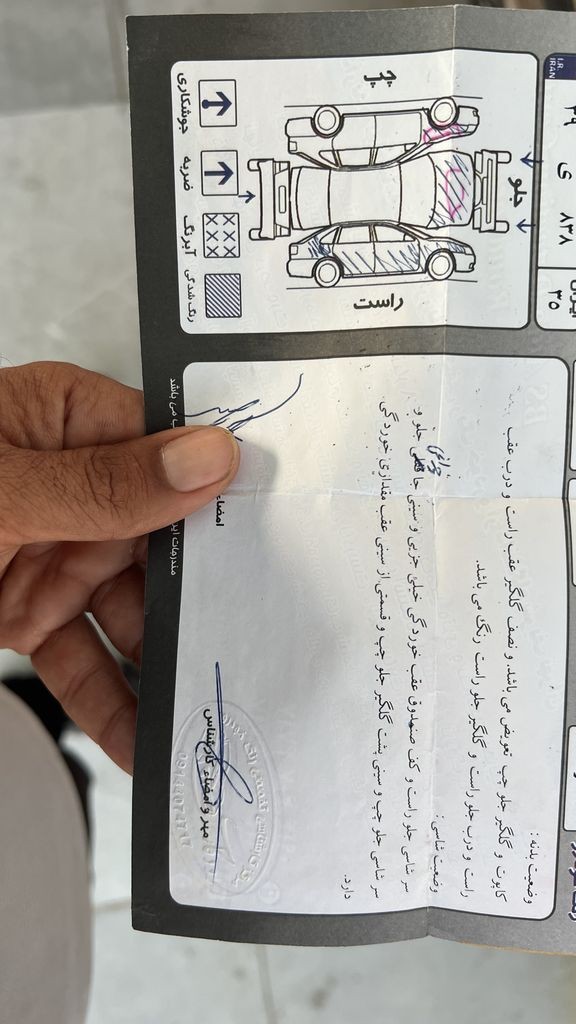 I.R.
IRAN
۴۹ ی ۸۳۸
ایران
۳۵
چپ
جلو
راست
جوشکاری
ضربه
آبرنگ
رنگ شدگی
وضعیت بدنه :
کاپوت و گلگیر جلو چپ تعویض می باشد. و نصف گلگیر عقب راست و درب عقب
راست و درب جلو راست و گلگیر جلو راست رنگ می باشد.
وضعیت شاسی :
سر شاسی جلو راست و کف صندوق عقب خوردگی خیلی جزیی و سینی جا چراغی جلو و
سر شاسی جلو چپ و سینی پشت گلگیر جلو چپ و قسمتی از سینی عقب مقداری خوردگی
دارد.
امضاء
مهر و امضاء کارشناس
مندرجات
می باشد